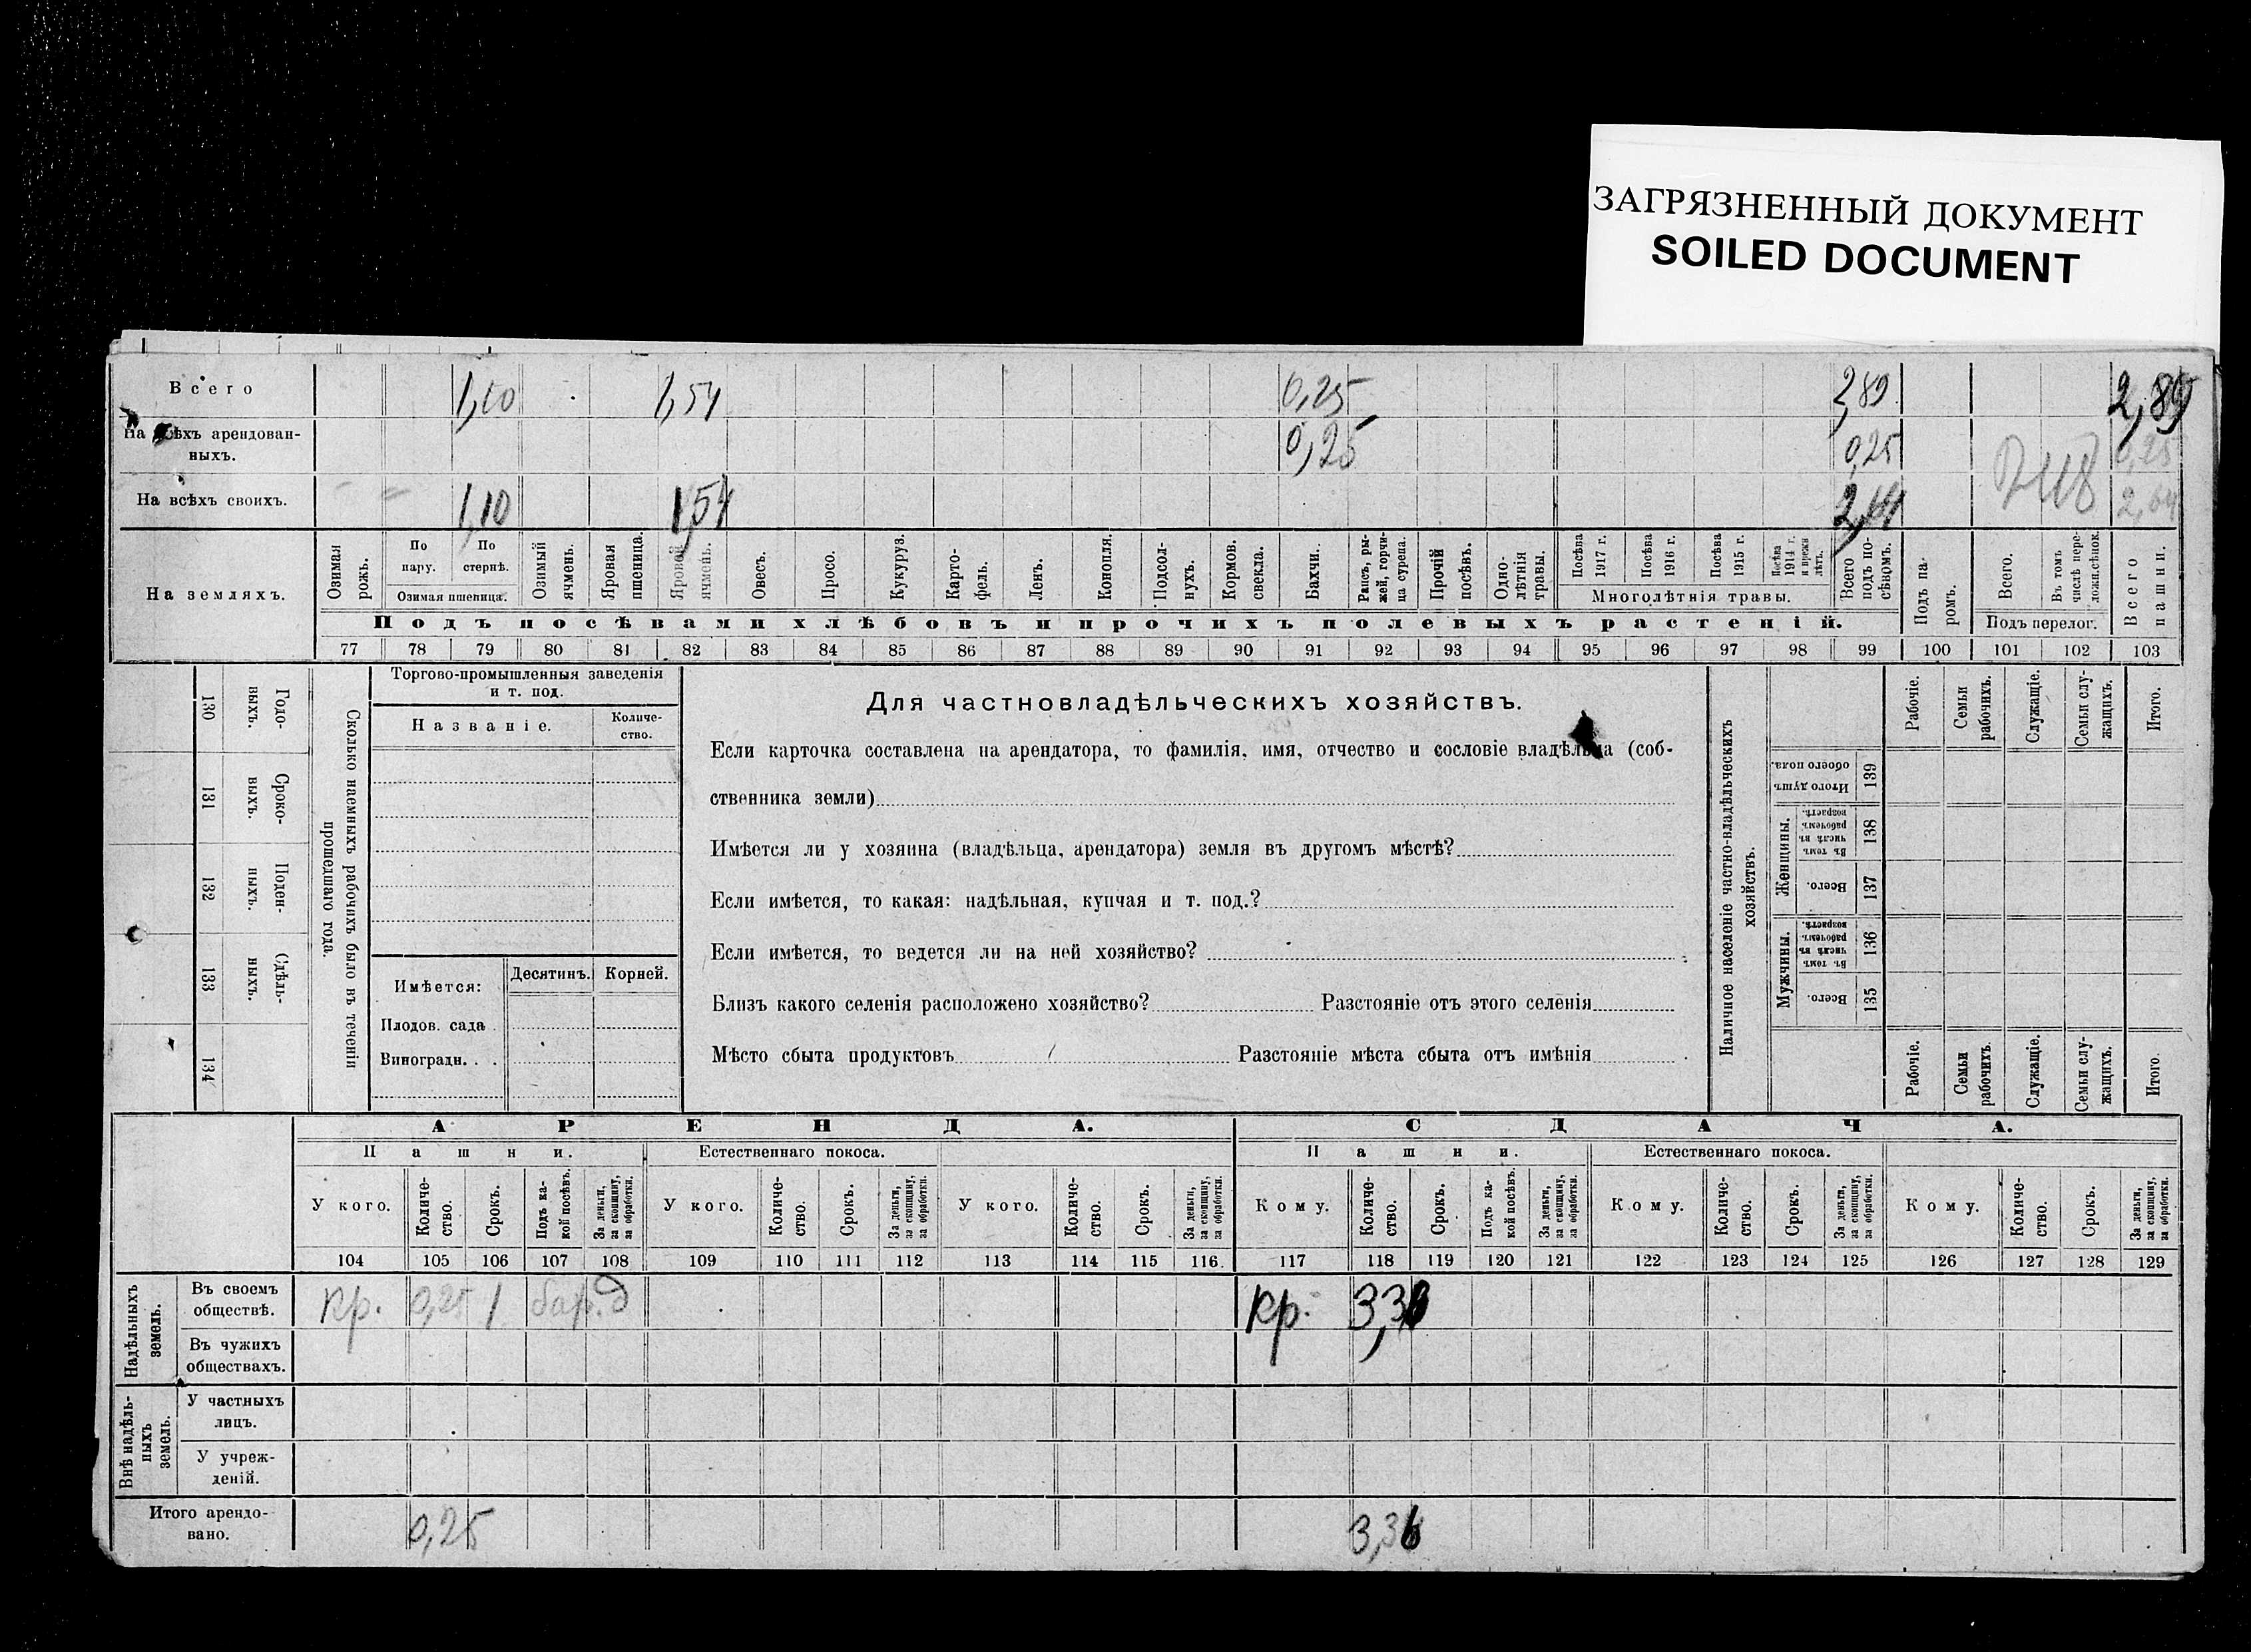 ЗАГРЯЗНЕННЫЙ ДОКУМЕНТ
SOILED DOCUMENT
Всего 1,10 1,54 0,25 2,89 2,89
На всѣхъ арендованныхъ. 0,25 0,25 0,25
На всѣхъ своихъ. 1,10 1,54 2,64 2,64
На земляхъ.
Озимая рожь.
По пару.
По стернѣ.
Озимая пшеница.
Озимый ячмень.
Яровая пшеница.
Яровой ячмень.
Овесъ.
Просо.
Кукуруз.
Картофель.
Ленъ.
Конопля.
Подсолнухъ.
Кормов. свекла.
Бахчи.
Рапсъ, рыжей, горчица сурепа.
Прочій посѣвъ.
Однолѣтнія травы.
Посѣва 1917 г.
Посѣва 1916 г.
Посѣва 1915 г.
Посѣва 1914 г. и прежн лѣтъ.
Многолѣтнія травы.
Всего подъ посѣвомъ.
Подъ паромъ.
Всего.
Въ томъ числѣ переложн.сѣнок.
Подъ перелог.
Всего пашни.
Подъ посѣвами хлѣбовъ и прочихъ полевыхъ растеній.
77 78 79 80 81 82 83 84 85 86 87 88 89 90 91 92 93 94 95 96 97 98 99 100 101 102 103
130 Годовыхъ.
131 Сроковыхъ.
132 Поденныхъ.
133 Сдѣльныхъ.
134
Сколько наемныхъ рабочихъ было въ теченіи прошедшаго года.
Торгово-промышленныя заведенія
и т. под.
Названіе.
Количество.
Имѣется:
Десятинъ.
Корней.
Плодов. сада .
Виноградн. . .
Для частновладѣльческихъ хозяйствъ.
Если карточка составлена на арендатора, то фамилія, имя, отчество и сословіе владѣльца (соб-
ственника земли)
Имѣется ли у хозяина (владѣльца, арендатора) земля въ другомъ мѣстѣ?
Если имѣется, то какая: надѣльная, купчая и т. под.?
Если имѣется, то ведется ли на ней хозяйство?
Близъ какого селенія расположено хозяйство? Разстояніе отъ этого селенія
Мѣсто сбыта продуктовъ Разстояніе мѣста сбыта отъ имѣнія
Наличное населеніе частно-владѣльческихъ хозяйствъ.
Рабочіе.
Семьи рабочихъ.
Служащіе.
Семьи служащихъ.
Итого.
Итого душъ обоего пола. 139
Женщины.
Въ томъ числѣ въ рабочемъ возрастѣ. 138
Всего. 137
Мужчины.
Въ томъ числѣ въ рабочемъ возрастѣ. 136
Всего. 135
Рабочіе.
Семьи рабочихъ.
Служащіе.
Семьи служащихъ.
Итого.
АРЕНДА. СДАЧА.
Пашни. Естественнаго покоса. Пашни. Естественнаго покоса.
У кого.
Количество.
Срокъ.
Подъ какой посѣвъ.
За деньги, за скопщину, за обработки.
У кого.
Количество.
Срокъ.
За деньги, за скопщину, за обработки.
У кого.
Количество.
Срокъ.
За деньги, за скопщину, за обработки.
Кому.
Количество.
Срокъ.
Подъ какой посѣвъ.
За деньги, за скопщину, за обработки.
Кому.
Количество.
Срокъ.
За деньги, за скопщину, за обработки.
Кому.
Количество.
Срокъ.
За деньги, за скопщину, за обработки.
104 105 106 107 108 109 110 111 112 113 114 115 116. 117 118 119 120 121 122 123 124 125 126 127 128 129
Надѣльныхъ земель.
Въ своемъ обществѣ. кр. 0,25 1 кр. 3,36
Въ чужихъ обществахъ.
Внѣ надѣльныхъ земель.
У частныхъ лицъ.
У учрежденій.
Итого арендовано. 0,25 3,36